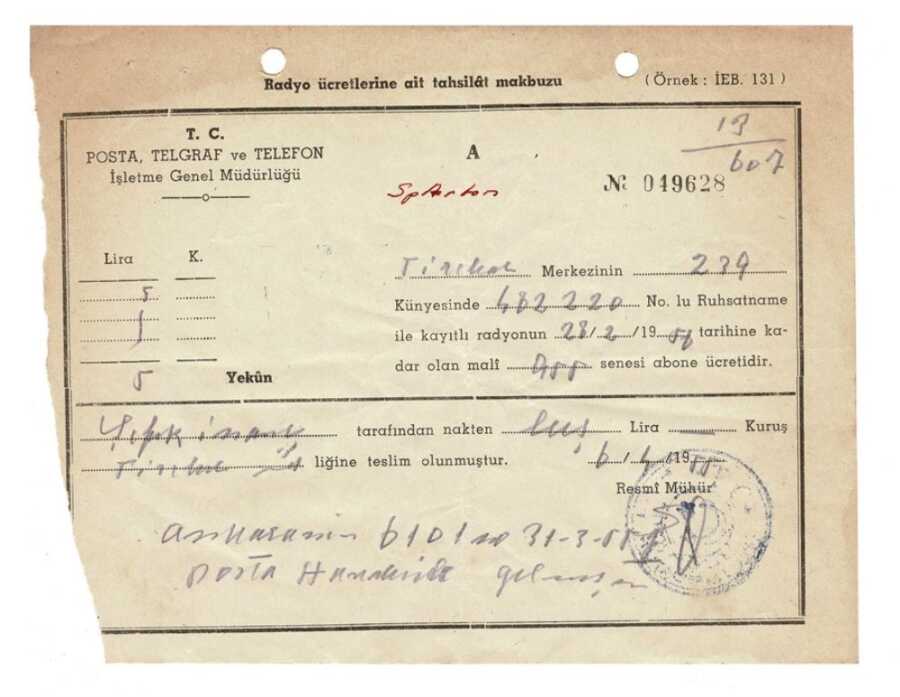 Radyo ücretlerine ait tahsilât makbuzu (Örnek : İEB. 131)
T. C.
POSTA, TELGRAF ve TELEFON
İşletme Genel Müdürlüğü
A
19
607
№ 049628
Lira K.
5
5 Yekûn
Merkezinin 239
Künyesinde 482220 No. lu Ruhsatname
ile kayıtlı radyonun 28/2/19 56 tarihine ka-
dar olan malî 955 senesi abone ücretidir.
tarafından nakten beş Lira — Kuruş
liğine teslim olunmuştur. 6/4/19 55
Resmî Mühür
6101 31-3-55
Posta